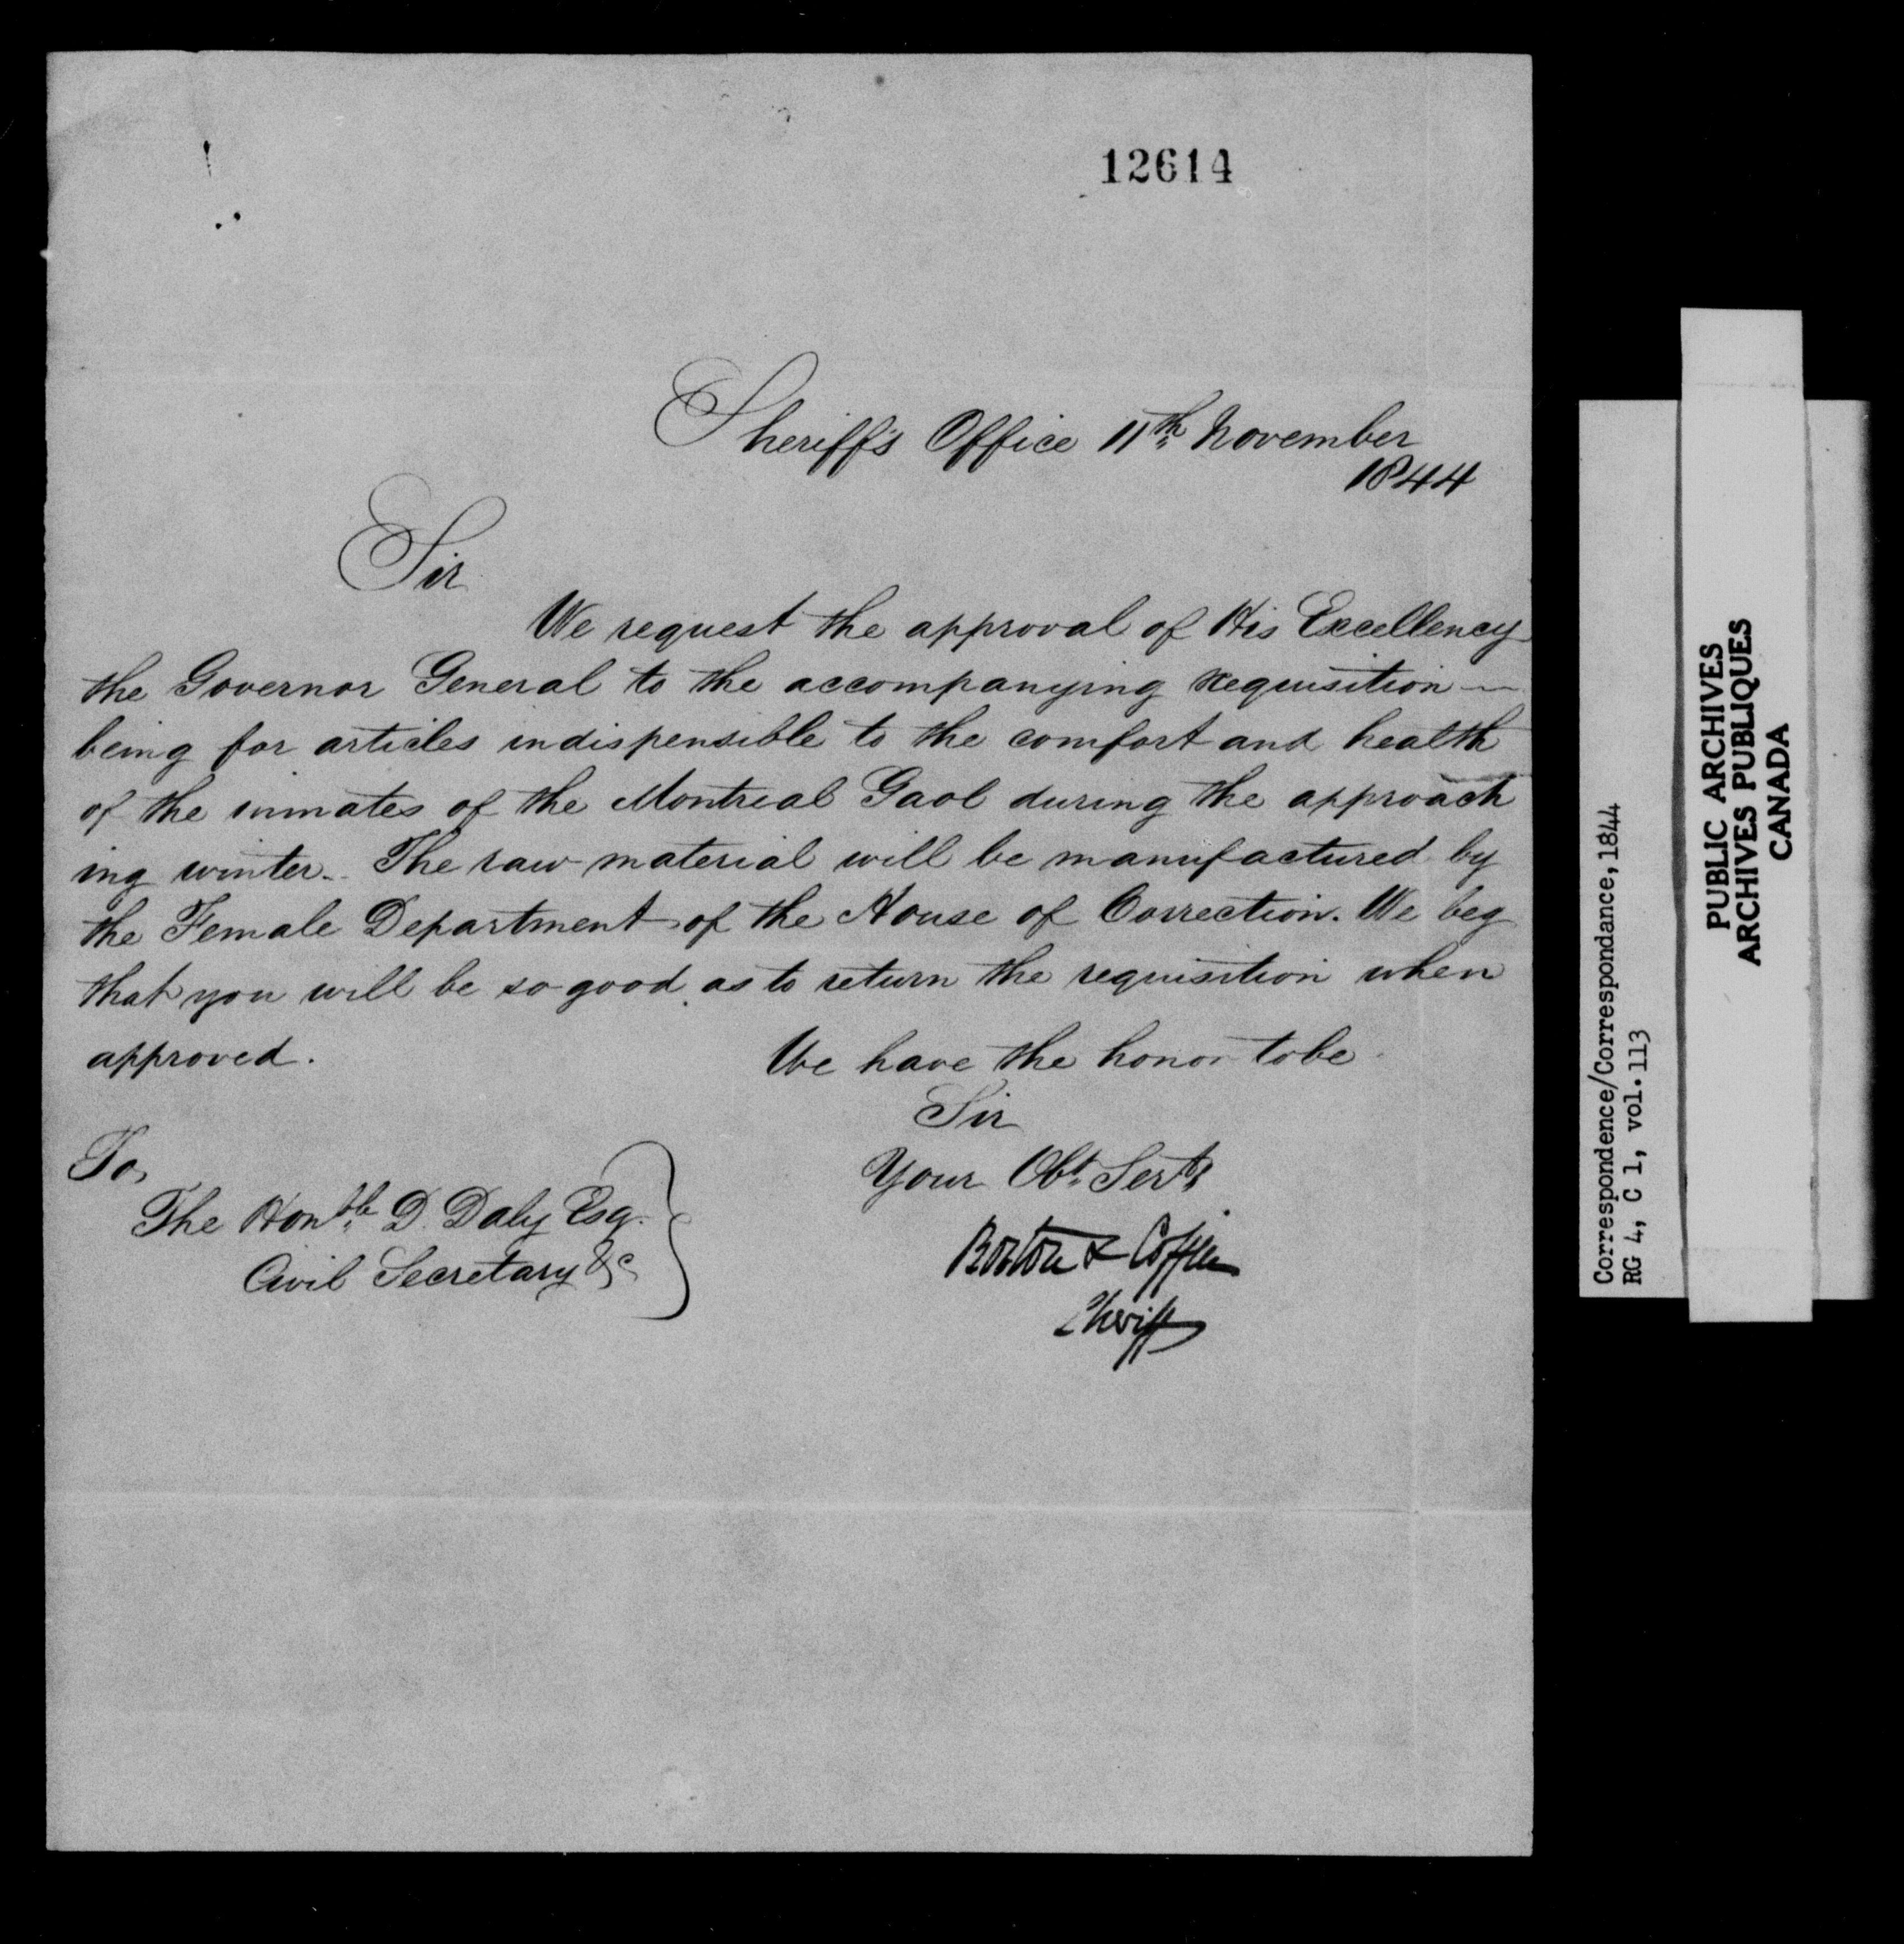 12614
Sheriff's Office 11th November
1844
Sir
We request the approval of His Excellency
the Governor General to the accompanying requisition —
being for articles indispensible to the comfort and health
of the inmates of the Montreal Gaol during the approach
ing winter. The raw material will be manufactured by
the Female Department of the House of Correction. We beg
that you will be so good as to return the requisition when
approved.
We have the honor to be
Sir
Your Obt Servts
Boston & Coffin
Sheriff
To,
The Honble D. Daly Esq.
Civil Secretary &c
Correspondence/Correspondance, 1844
RG 4, C 1, vol. 113
PUBLIC ARCHIVES
ARCHIVES PUBLIQUES
CANADA